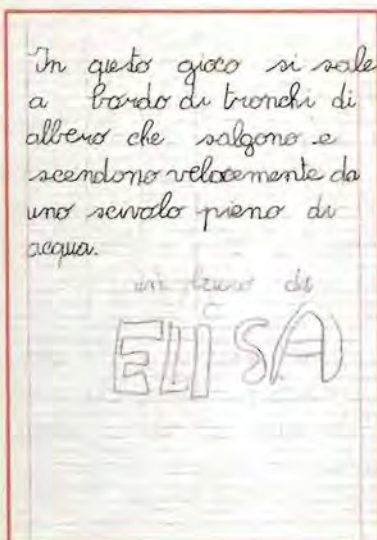 In questo gioco si sale
a bordo di tronchi di
albero che salgono e
scendono velocemente da
uno scivolo pieno di
acqua.
un lavoro di
ELISA